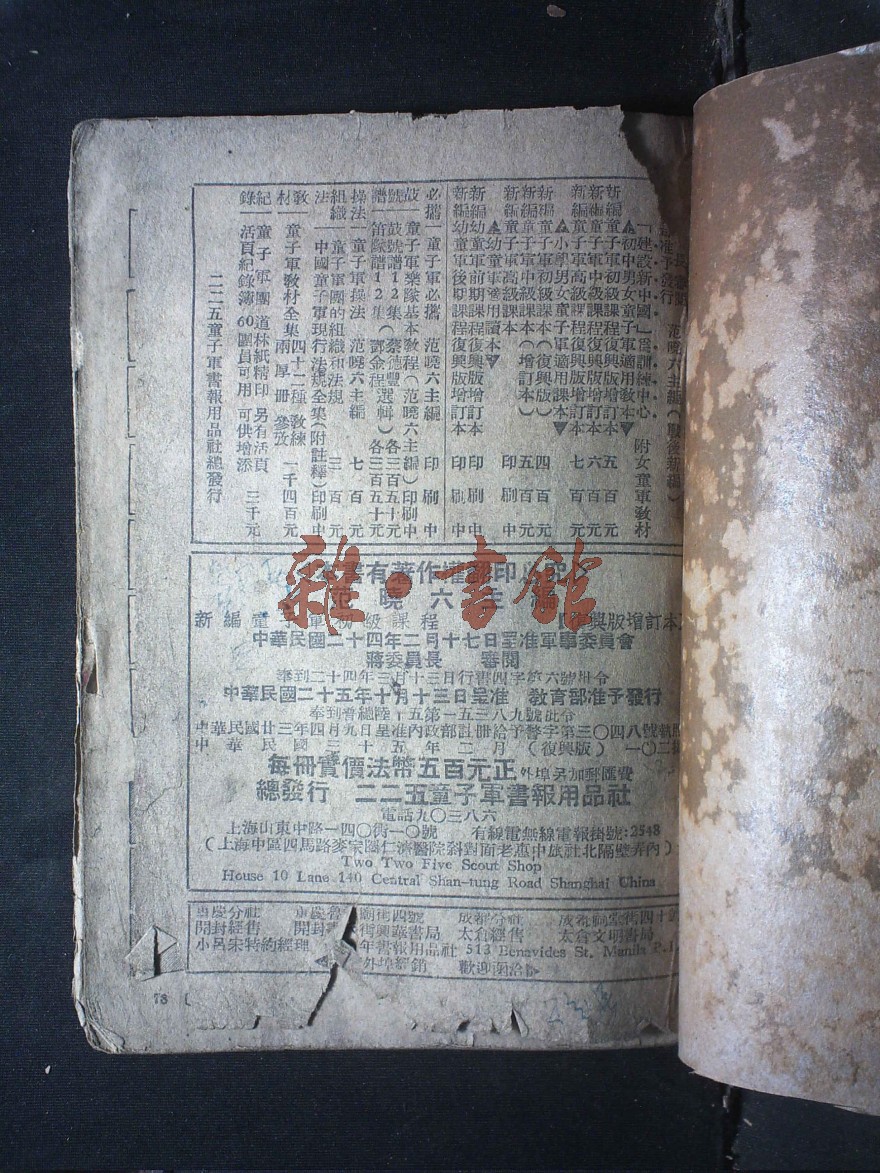 範曉六主編(戰後新編)
「建設新中國」爲訓練中心 附女童軍教材
▲初中男女童子軍適用教本▼
新編童子軍初級課程復興版增訂本 五百元
新編童子軍中級課程復興版增訂本 六百元
新編童子軍高級課程復興版增訂本 七百元
▲小學男女童子軍適用課本▼
新編童子軍初級課本(復興版) 四百元
童子軍中級課本(增訂本) 五百元
新編童子軍高級課本 印刷中
▲幼童軍適用讀本▼
新編幼童軍前期課程復興版增訂本 印刷中
新編幼童軍後期課程復興版增訂本 印刷中
必攜 童子軍必攜 范曉六主編 印刷中
鼓號 童子軍樂隊基本教程(范曉六主編)印刷中
鼓號譜12集(蔡德豐 各三百五十元
譜 笛隊譜12集(鄧金程選輯)各三百五十元
操法 童子軍操法 范曉六主編 七百元
組織 童子軍團的組織和法規 三百元
法 中國童子軍現行法規全集(附註釋)印刷中
教材 童子軍教材全集四十二種教練 兩厚冊 參攷 一千四百元
紀錄 童子軍團 活頁紀錄簿 道林紙精印 另有活頁 60團員可用 可供增添 三千元
二二五童子軍書報用品社總發行
本書有著作權翻印必究
范曉六主編
新編童子軍初級課程 【復興版增訂本】
中華民國二十四年二月十七日呈准軍事委員會
蔣委員長 審閱
奉到二十四年三月十三日行書四字第六號批令
中華民國二十五年十月十三日呈准 教育部准予發行
奉到普總陸十五第一五三八九號批令
中華民國廿三年四月九日呈准內政部註冊給予警字第三〇四八號執照
中華民國三十五年二月(復興版)一〇二
每冊實價法幣五百元正 外埠另加郵匯費
總發行 二二五童子軍書報用品社
電話九〇三八六
上海山東中路一四〇衖一〇號 有線電無線電報掛號:2548
(上海中區四馬路麥家圈仁濟醫院斜對面老惠中旅社北隔壁弄內)
Two Two Five Scout Shop
House 10 Lane 140 Central Shan-tung Road Shanghai China
重慶分社 重慶 廟街四號 成都分社 成都 街四十
開封經售 開封 街 書局 太倉經售 太倉文明書局
小呂宋特約經理 年書報用品社 513 Benavides St. Manila P.I.
外埠經銷 歡迎函洽
78